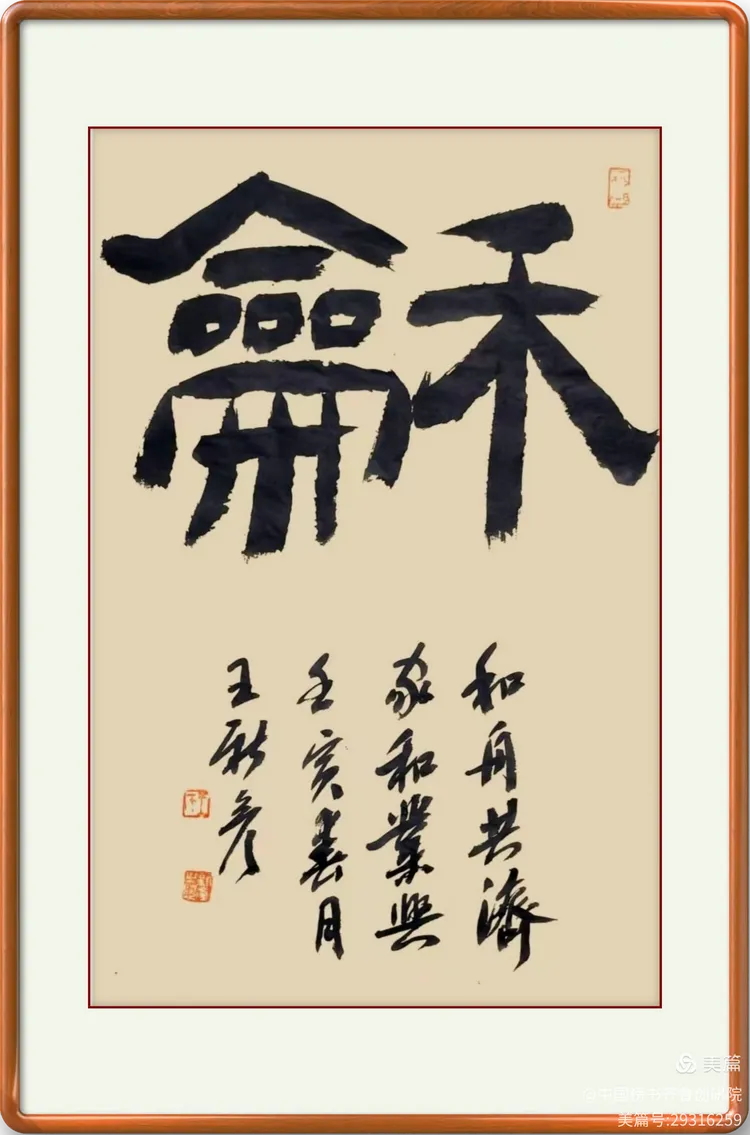 龢
和舟共濟
家和業興
壬寅春月
王新彦
美篇
@中国榜书产业创研院
美篇号:29316259